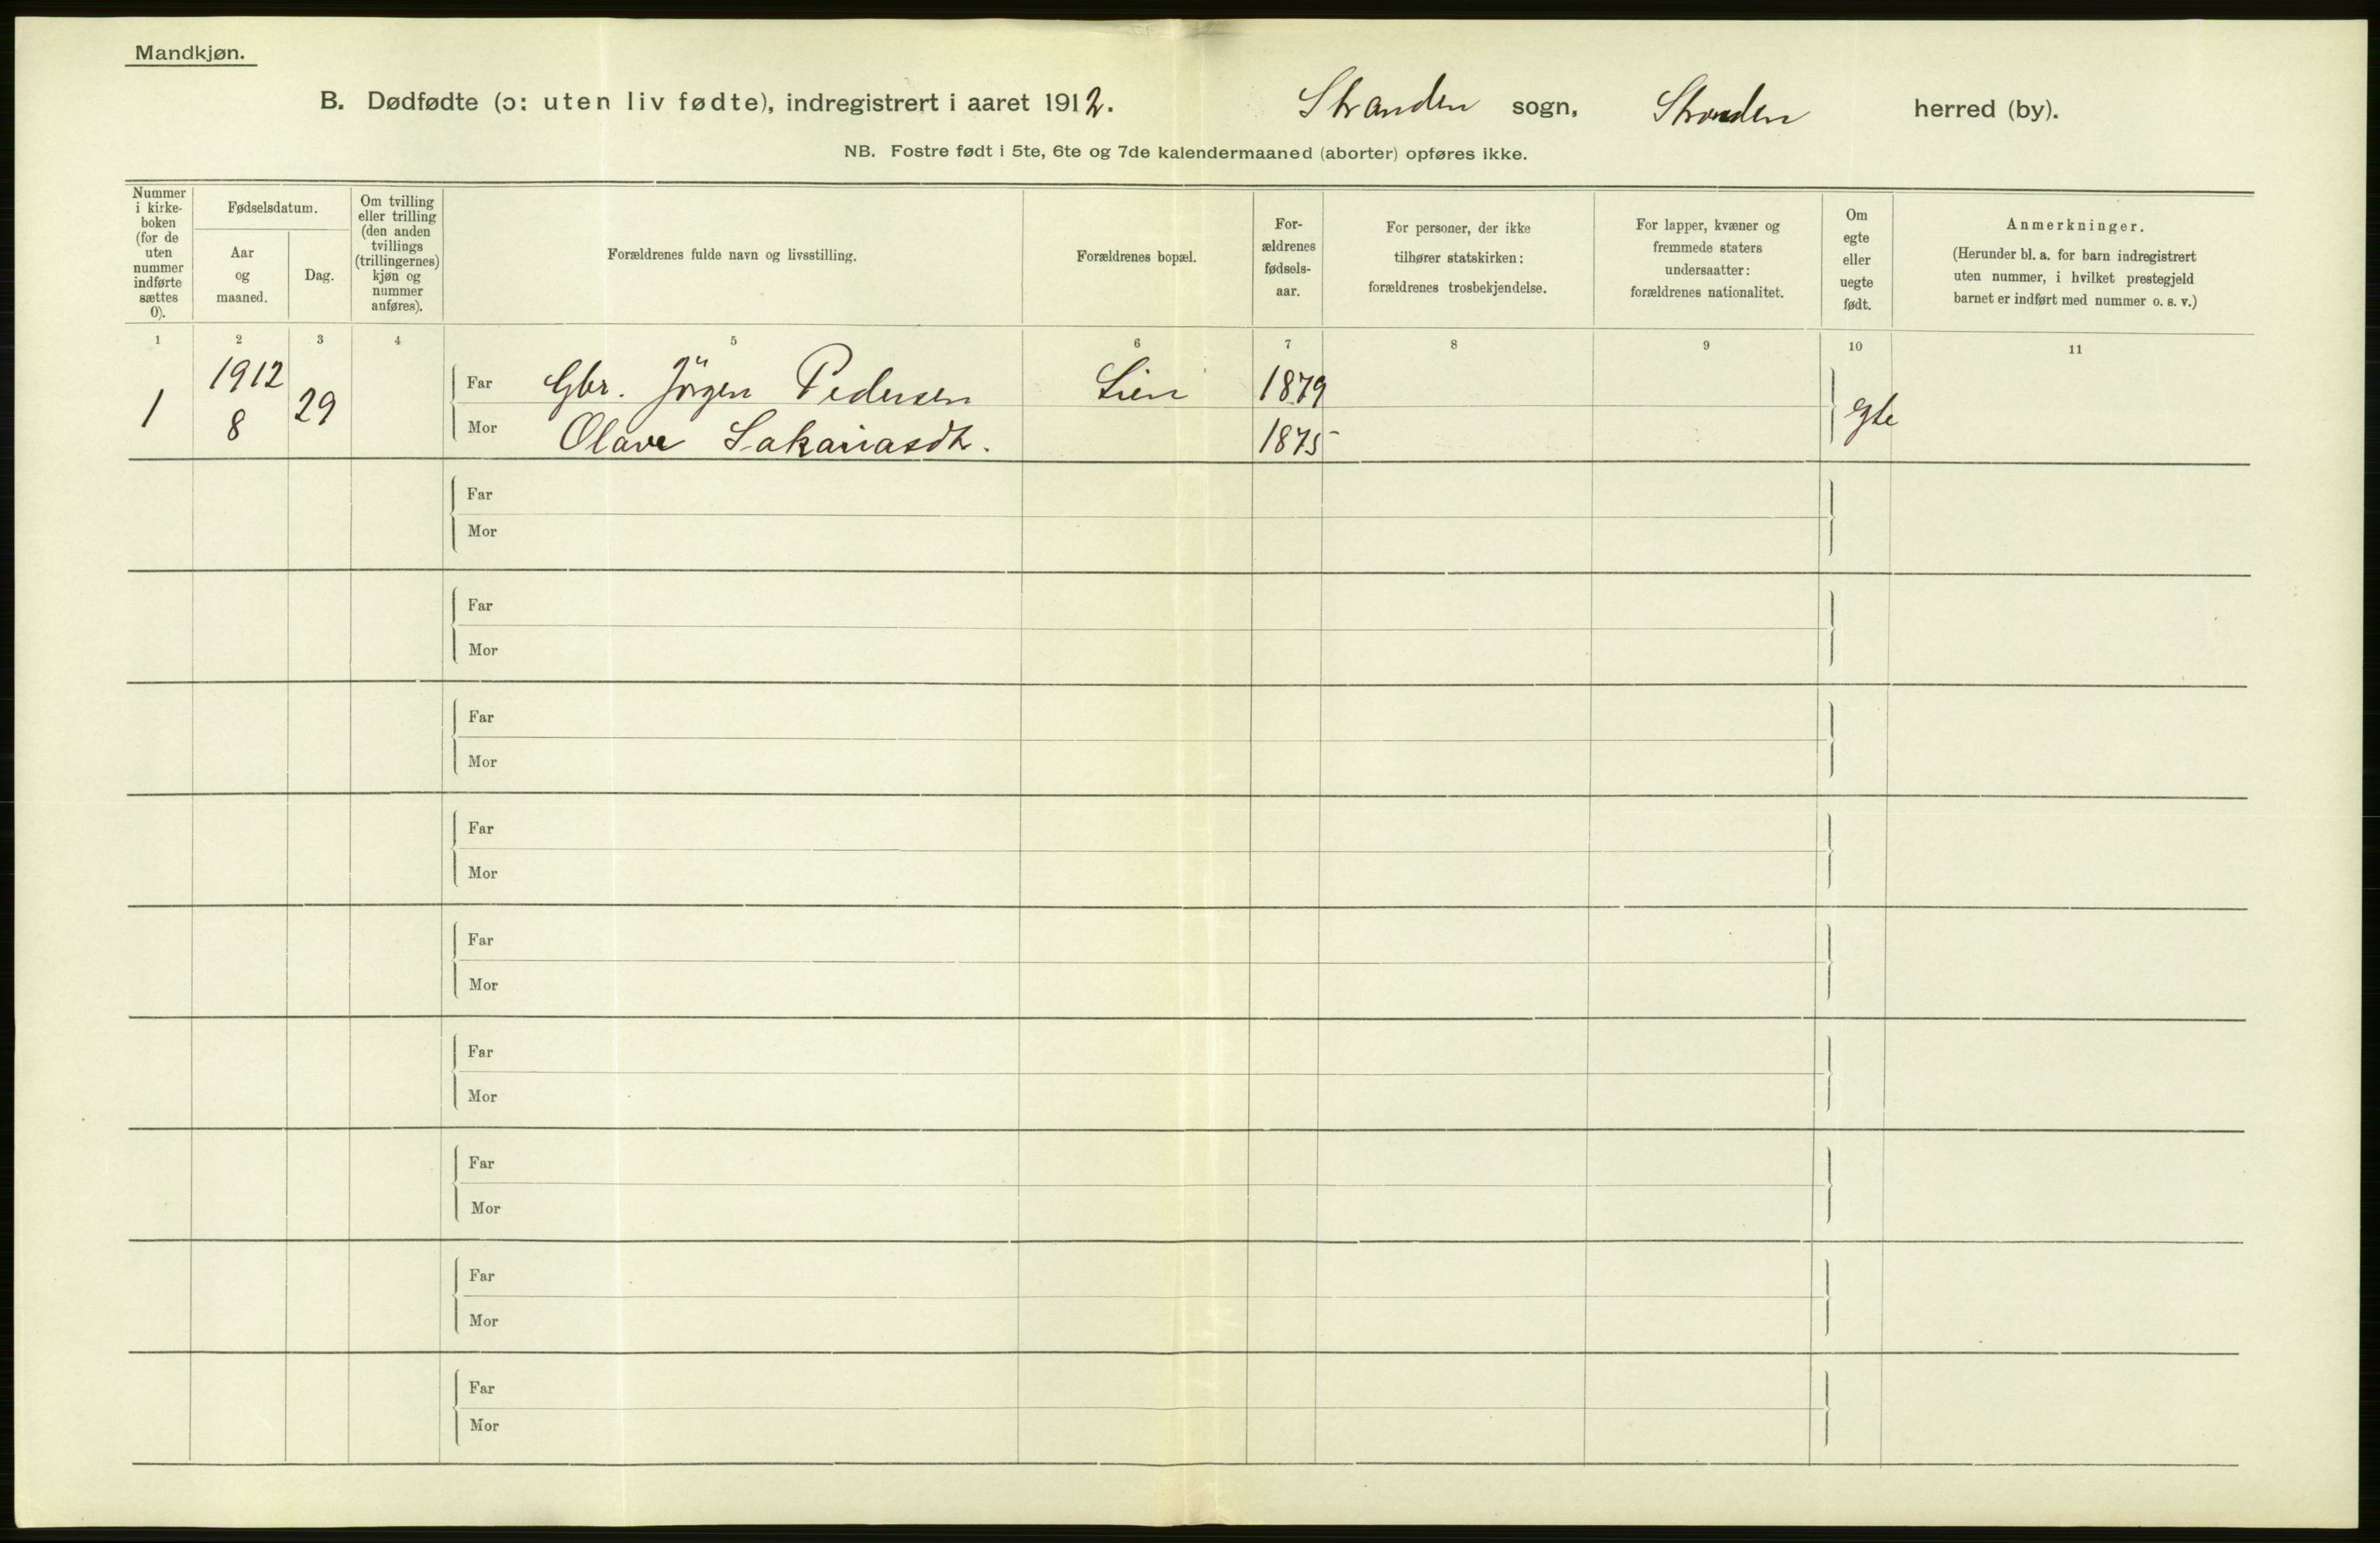 Mandkjøn.
B. Dødfødte (ɔ: uten liv fødte), indregistrert i aaret 1912. Stranden sogn, Stranden herred (by).
NB. Fostre født i 5te, 6te og 7de kalendermaaned (aborter) opføres ikke.
Nummer
i kirke-
boken
(for de
uten
nummer
indførte
sættes
0).
Fødselsdatum.
Aar
og
maaned.
Dag.
Om tvilling
eller trilling
(den anden
tvillings
(trillingernes)
kjøn og
nummer
anføres).
Forældrenes fulde navn og livsstilling.
Forældrenes bopæl.
For-
ældrenes
fødsels-
aar.
For personer, der ikke
tilhører statskirken:
forældrenes trosbekjendelse.
For lapper, kvæner og
fremmede staters
undersaatter:
forældrenes nationalitet.
Om
egte
eller
uegte
født.
Anmerkninger.
(Herunder bl. a. for barn indregistrert
uten nummer, i hvilket prestegjeld
barnet er indført med nummer o. s. v.)
1 2 3 4 5 6 7 8 9 10 11
1 1912 8 29
Far Gbr. Jörgen Pedersen Lien 1879
Mor Olave Sakariasdtr. 1875
egte
Far
Mor
Far
Mor
Far
Mor
Far
Mor
Far
Mor
Far
Mor
Far
Mor
Far
Mor
Far
Mor